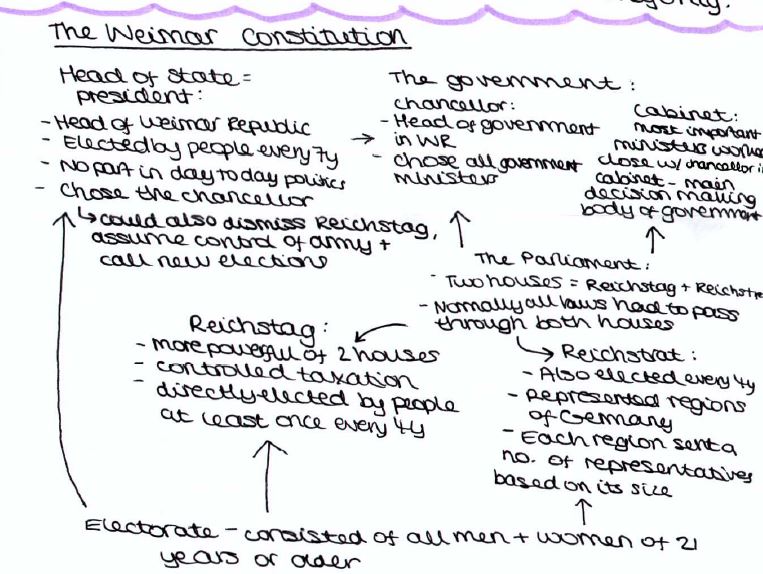 The Weimar Constitution
Head of state =
president:
- Head of Weimar Republic
- Elected by people every 7y
- No part in day to day politics
- Chose the chancellor
↳ could also dismiss Reichstag,
assume control of army +
call new elections
The government:
chancellor:
- Head of government
in WR
- chose all government
ministers
Cabinet:
most important
ministers
close w/ chancellor
cabinet - main
decision making
body of government
The Parliament:
- Two houses = Reichstag +
- Normally all laws had to pass
through both houses
Reichstag:
- more powerful of 2 houses
- controlled taxation
- directly elected by people
at least once every 4y
Reichstrat:
- Also elected every 4y
- Represented regions
of Germany
- Each region sent a
no. of representatives
based on its size
Electorate - consisted of all men + women of 21
years or older